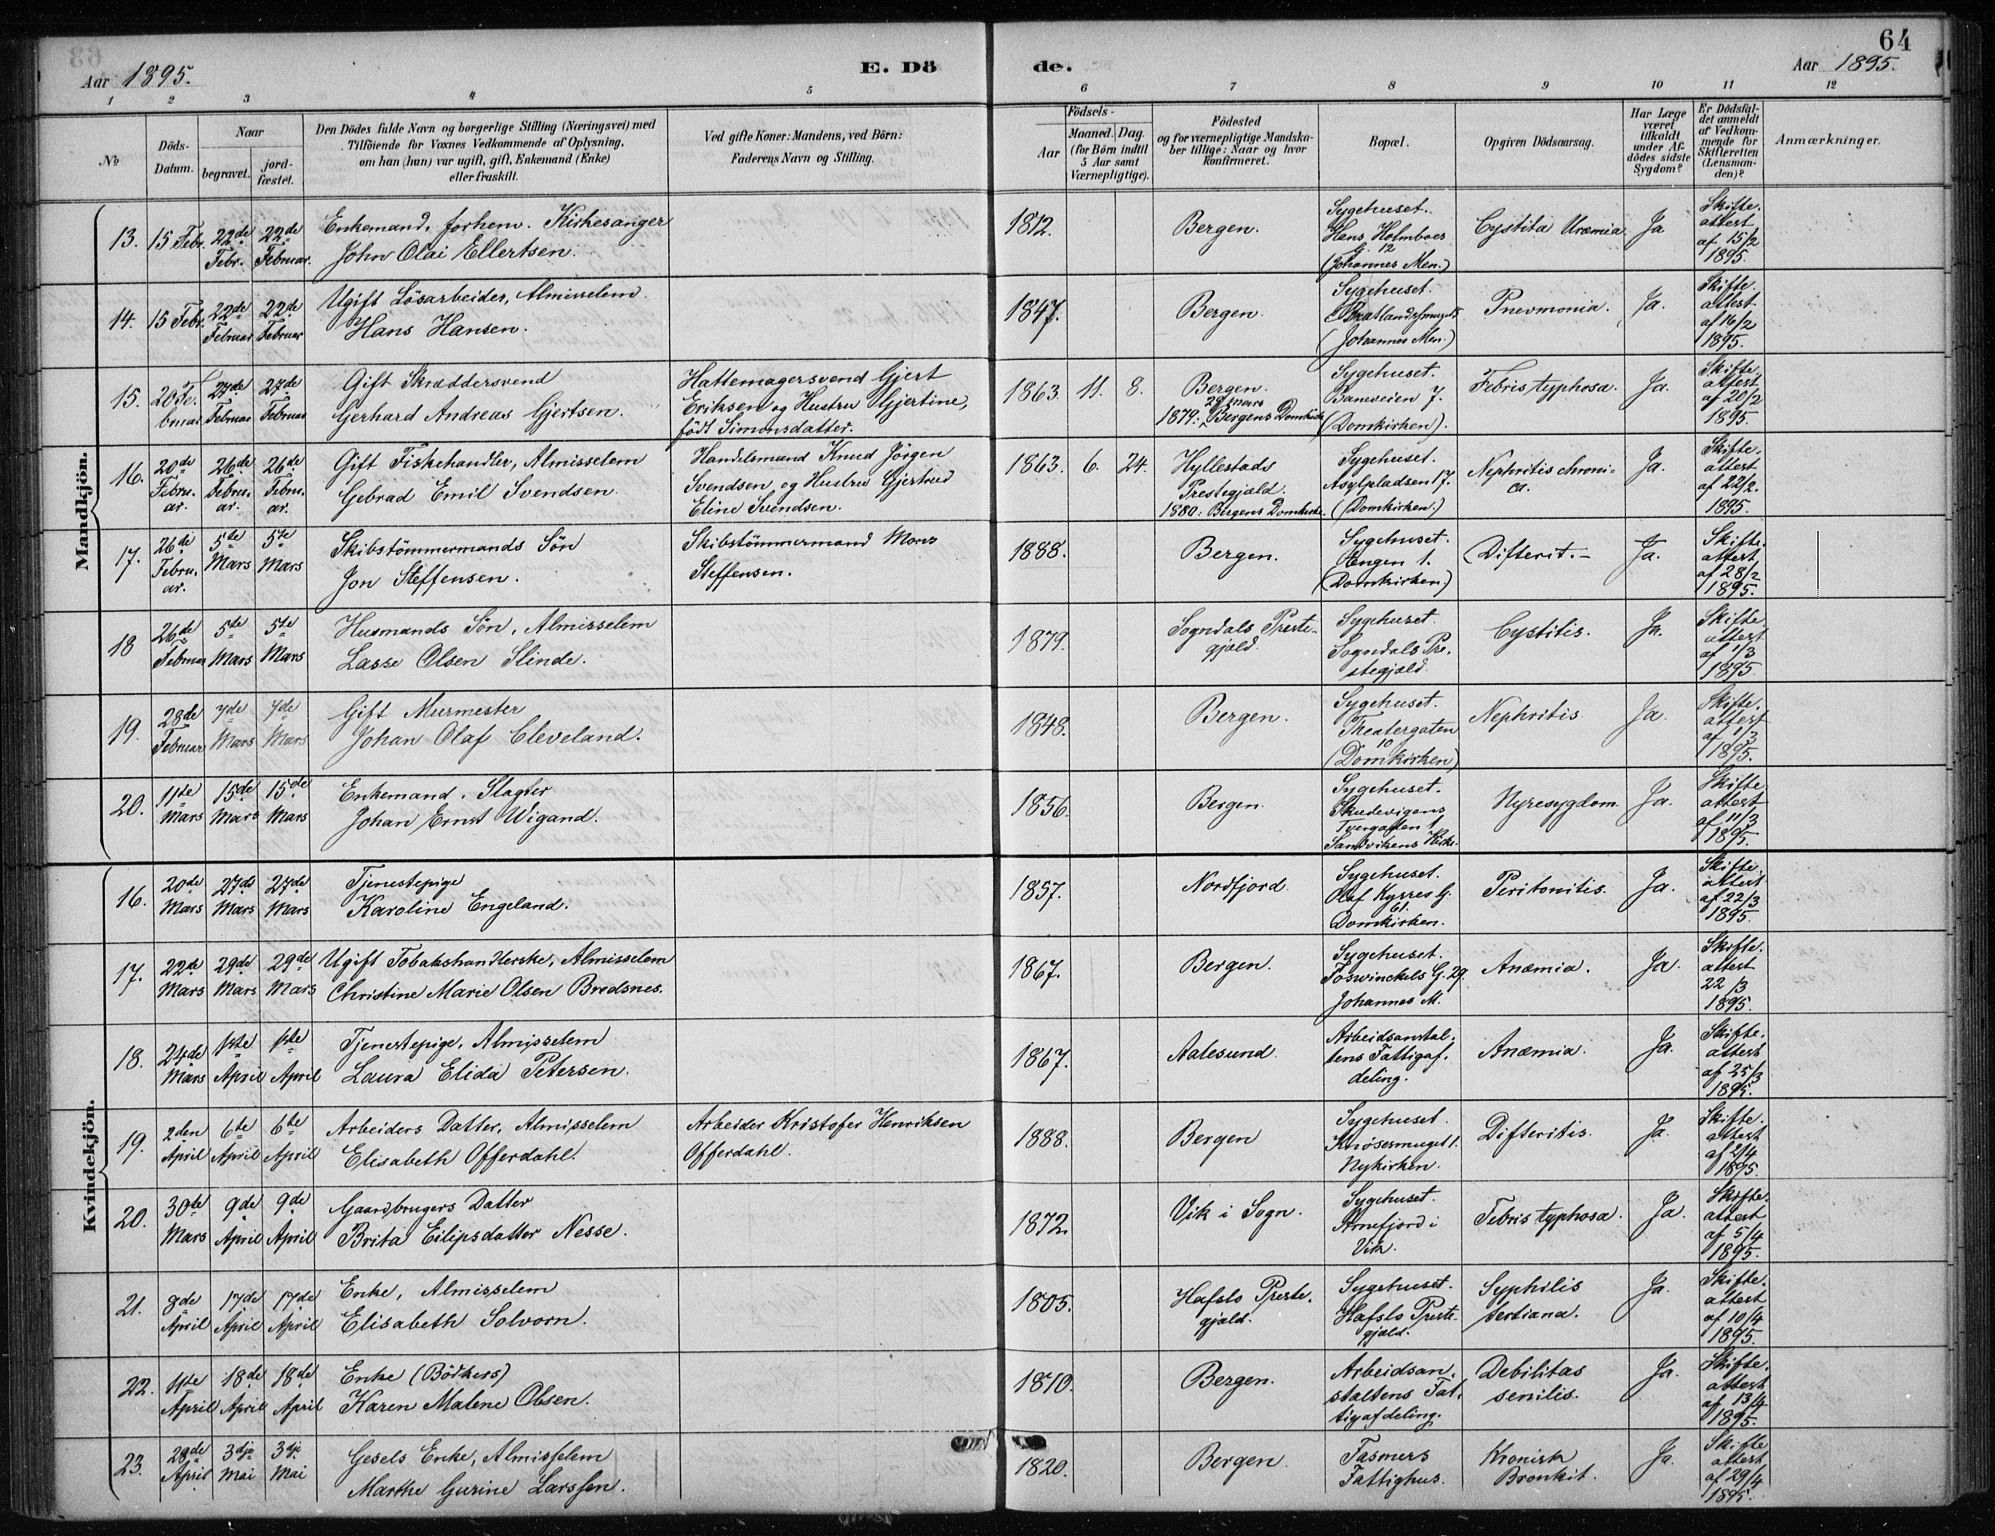 64
Aar 1895.
E. Dö
de.
Aar 1895.
1 2 3 4 5 6 7 8 9 10 11 12
No
Döds-
Datum.
Naar
begravet.
jord-
fæstet.
Den Dödes fulde Navn og borgerlige Stilling (Næringsvei) med
Tilföiende for Voxnes Vedkommende af Oplysning,
om han (hun) var ugift, gift, Enkemand (Enke)
eller fraskilt.
Ved gifte Koner: Mandens, ved Börn:
Faderens Navn og Stilling.
Födsels-
Aar
Maaned. Dag.
(for Börn indtil
5 Aar samt
Værnepligtige).
Födested
og for værnepligtige Mandska-
ber tillige: Naar og hvor
konfirmeret.
Bopæl.
Opgiven Dödsaarsag.
Har Læge
været
tilkaldt
under Af-
dödes sidste
Sygdom?
Er Dödsfal-
det anmeldt
af Vedkom-
mende for
Skifteretten
(Lensman-
den)?
Anmærkninger.
Mandkjön.
13. 15 Febr. 22de Febr. 22de Februar.
Enkemand, forhen. Kirkesanger
John Olai Ellertsen.
1812.
Bergen.
Sygehuset.
Hans Holmboes
G. 12
(Johannes Men.)
Cystita Uræmia
Ja
Skifte.
attest
af 15/2
1895.
14. 15 Febr. 22de Februar 22de Februar
Ugift Lösarbeider, Almisselem.
Hans Hansen.
1847.
Bergen.
Sygehuset.
(Johannes Men.)
Pnevmonia.
Ja.
Skifte.
attest
af 16/2
1895.
15. 20 Fe-
bruar 27de Februar 27de Februar
Gift Skræddersvend
Gerhard Andreas Gjertsen.
Hattemagersvend Gjert
Eriksen og Hustru Gjertine,
födt Simonsdatter.
1863. 11. 8.
Bergen.
29 mars
1879: Bergens Domkirke
Sygehuset.
Baneveien 7.
(Domkirken).
Febris typhosa.
Ja.
Skifte.
attest
af 20/2
1895.
16. 20de Febru-
ar. 26de Febru-
ar. 26de Febru-
ar.
Gift Fiskehandler, Almisselem
Gebrad Emil Svendsen.
Handelsmand Knud Jörgen
Svendsen, og Hustru Gjertrud
Eline Svendsen.
1863. 6. 24.
Hyllestads
Prestegjæld.
1880: Bergens Domkirke.
Sygehuset.
Asylpladsen 17.
(Domkirken.)
Nephritis chroni-
ca.
Ja.
Skifte.
attest
af 22/2.
1895.
17. 26de Febru-
ar. 5te Mars 5te Mars
Skibstömmermands Sön
Jon Steffensen.
Skibstömmermand Mons
Steffensen.
1888.
Bergen.
Sygehuset.
Engen 1.
(Domkirken.)
Difterit.-
Ja.
Skifte.
attest
af 28/2
1895.
18 26de Februar 5te Mars 5te Mars
Husmands Sön, Almisselem
Lasse Olsen Slinde.
1879.
Sogndals Preste-
gjæld.
Sygehuset.
Sogndals Pre-
stegjæld.
Cystitis.
Ja.
Skifte.
attest
af 1/3
1895.
19. 28de Februar 7de Mars 7de Mars
Gift Murmester
Johan Olaf Cleveland.
1848.
Bergen.
Sygehuset.
Theatergaten
10
(Domkirken)
Nephritis.
Ja.
Skifte.
attest
af 1/3
1895.
20. 11te Mars 15de Mars 15de Mars
Enkemand. Slagter
Johan Ernst Wigand.
1856.
Bergen.
Sygehuset.
Skudevigens
Tvergaten 1.
Sandvikens Kirke.
Nyresygdom.
Ja.
Skifte
attest
af 11/3
1895.
Kvindekjön.
16. 20de Mars 27de Mars 27de Mars
Tjenestepige
Karoline Engeland.
1857.
Nordfjord.
Sygehuset.
Olaf Kyrres G.
61.
Domkirken.
Peritonitis.
Ja.
Skifte.
attest
af 22/3
1895.
17. 22de Mars 29de Mars 29de Mars
Ugift Tobakshandlerske, Almisselem
Christine Marie Olsen Bredsnes.
1867.
Bergen.
Sygehuset.
Foswinckels G. 29.
Johannes M.
Anæmia.
Ja.
Skifte.
attest
22/3
1895.
18. 24de Mars 1ste April 1ste April
Tjenestepige, Almisselem
Laura Elida Petersen.
1867.
Aalesund.
Arbeidsanstal-
tens Fattigaf-
deling.
Anæmia.
Ja.
Skifte.
attest
af 25/3
1895.
19. 2den April 6te April 6te April
Arbeiders Datter, Almisselem
Elisabeth Offerdahl.
Arbeider Kristofer Henriksen
Offerdahl.
1888.
Bergen
Sygehuset.
Knösesmuget 1.
Nykirken.
Difteritis.
Ja.
Skifte.
attest
af 2/4
1895
20. 30te Mars 9de April 9de April
Gaardbrugers Datter
Brita Eilipsdatter Nesse.
1872.
Vik i Sogn.
Sygehuset.
Arnefjord i
Vik.
Febris typhosa.
Ja.
Skifte.
attest
af 5/4
1895.
21. 8de April 17de April 17de April
Enke, Almisselem
Elisabeth Solvorn.
1805.
Hafslo Preste-
gjæld.
Sygehuset.
Hafslo Preste-
gjæld.
Syphilis
tertiana.
Ja.
Skifte.
attest
af 10/4
1895.
22. 11te April 18de April 18de April
Enke (Bödkers)
Karen Malene Olsen.
1810.
Bergen.
Arbeidsan-
staltens Fat-
tigafdeling.
Debilitas
senilis.
Ja.
Skifte.
attest
af 13/4
1895.
23. 28de April 3dje Mai 3dje Mai
Gesels Enke, Almisselem
Marthe Gurine Larssen.
1820.
Bergen.
Fasmers
Fattighus.
Kronisk
Bronkit.
Ja.
Skifte
attest
af 29/4
1895.